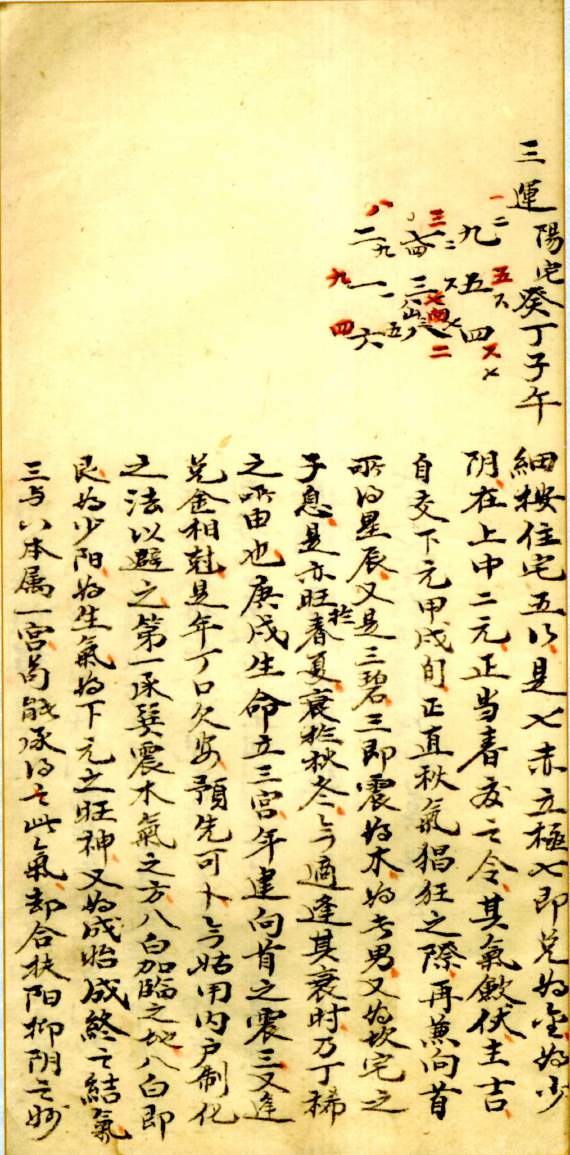 三運陽宅癸丁子午
細按住宅五行是七赤立極七即兌为金为少
阴在上中二元正当春夏之令其氣歛伏主吉
自交下元甲戌旬正直秋氣猖狂之際再兼向首
所得星辰又是三碧三即震为木为長男又为坎宅之
子息是亦旺於春夏衰於秋冬今適逢其衰时乃丁稀
之所由也庚戌生命立三宮年建向首之震三又逢
兌金相尅是年丁口欠安預先可卜今姑用内户制化
之法以避之第一承巽震木氣之方八白加臨之地八白即
艮为少阳为生氣为下元之旺神又为成始成終之結氣
三与八本属一宮苟能承得之此氣却合扶阳抑阴之妙